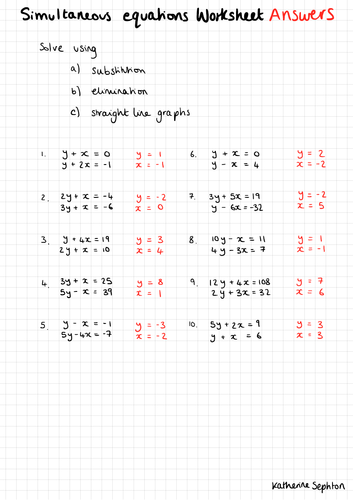 Simultaneous equations Worksheet Answers
Solve using
a) substitution
b) elimination
c) straight line graphs
1. y + x = 0 y = 1
y + 2x = -1 x = -1
2. 2y + x = -4 y = -2
3y + x = -6 x = 0
3. y + 4x = 19 y = 3
2y + x = 10 x = 4
4. 3y + x = 25 y = 8
5y - x = 39 x = 1
5. y - x = -1 y = -3
5y - 4x = -7 x = -2
6. y + x = 0 y = 2
y - x = 4 x = -2
7. 3y + 5x = 19 y = -2
y - 6x = -32 x = 5
8. 10y - x = 11 y = 1
4y - 3x = 7 x = -1
9. 12y + 4x = 108 y = 7
2y + 3x = 32 x = 6
10. 5y + 2x = 9 y = 3
y + x = 6 x = 3
Katherine Sephton